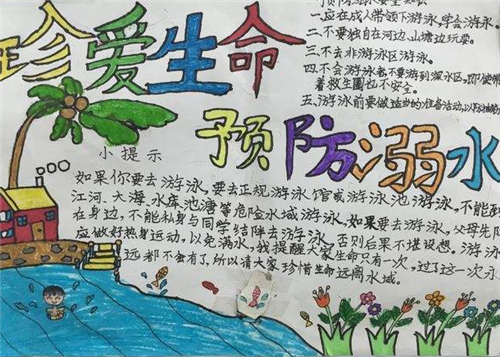 珍爱生命
预防溺水
一.应在成人带领下游泳,学会游泳.
二.不要独自在河边、山塘边玩耍。
三.不去非游泳区游泳。
四.不会游泳者,不要游到深水区,即使带
着救生圈也不安全.
五.游泳前要做适当的准备活动,以防抽筋
小提示
如果你要去游泳,要去正规游泳馆或游泳池游泳,不能到
江河、大海、水库池塘等危险水域游泳,如果要去游泳,父母先陪
在身边,不能私身与同学结阵去游泳,否则后果不堪设想,游泳
应做好热身运动,以免滿水,我提醒大家生命只有一次,过了这一次永
远都不会有了,所以请大家珍惜生命远离水域。